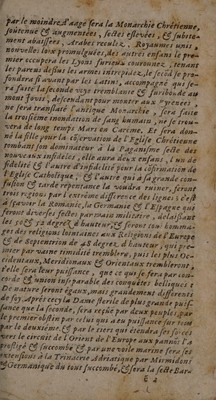 par le moindre d'aage sera la Monarchie Chrétienne,
soustenue & augmentées, sectes eslevées, & subite-
ment abaissées, Arabes reculez, Royaumes unis,
nouvelles loix promulguées, des autres enfans le pre-
mier occupera les Lyons furieux couronnez, tenans
les pates dessus les armes intrepides, le second se pro-
fondera si avant par les Latins, accompagné que se-
ra faite la seconde voye tremblante & furibonde au
mont Jovis, descendant pour monter aux Pyrenées
ne sera translaté l'antique Monarchie, sera faite
la troisième inondation de sang humain, ne se trou-
vera de long temps Mars en Caresme. Et sera don-
né la fille pour la conservation de l'Eglise Chrétienne
tombant son dominateur à la Paganisme secte des
nouveaux infidèles, elle aura deux enfans, l'un de
fidelité & l'autre d'infidelité par la confirmation de
l'Eglise Catholique, & l'autre qui à sa grande con-
fusion & tarde repentance la voudra ruiner, seront
trois regions par l'extrême difference des ligues; c'est
à sçavoir la Romanie, la Germanie & l'Espagne qui
feront diverses sectes par main militaire, delaissant
les 50 & 52 degrez d'hauteur, & feront tous homma-
ges des religions lointaines aux Regions de l'Europe
& de Septentrion de 48 degrez d'hauteur, qui pre-
mier par vaine timidité tremblera, puis les plus Oc-
cidentaux, Meridionaux & Orientaux trembleront,
telle sera leur puissance, que ce que se fera par con-
corde & union insuperable des conquestes belliques :
De nature seront egaux, mais grandement differents
de foy. Après cecy la Dame sterile de plus grande puis-
sance que la seconde, sera receuë par deux peuples, par
le premier obstiné par celuy qui a eu puissance sur tous
par le deuxième, & par le tiers qui estendra ses forces
vers le circuit de l'Orient de l'Europe aux pannons l'a
profligé & succombé & par une voile marine fera ses
extensions à la Trinacre Adriatique par Mirmidons
& Germanique du tout succombé, & sera la secte Bar-